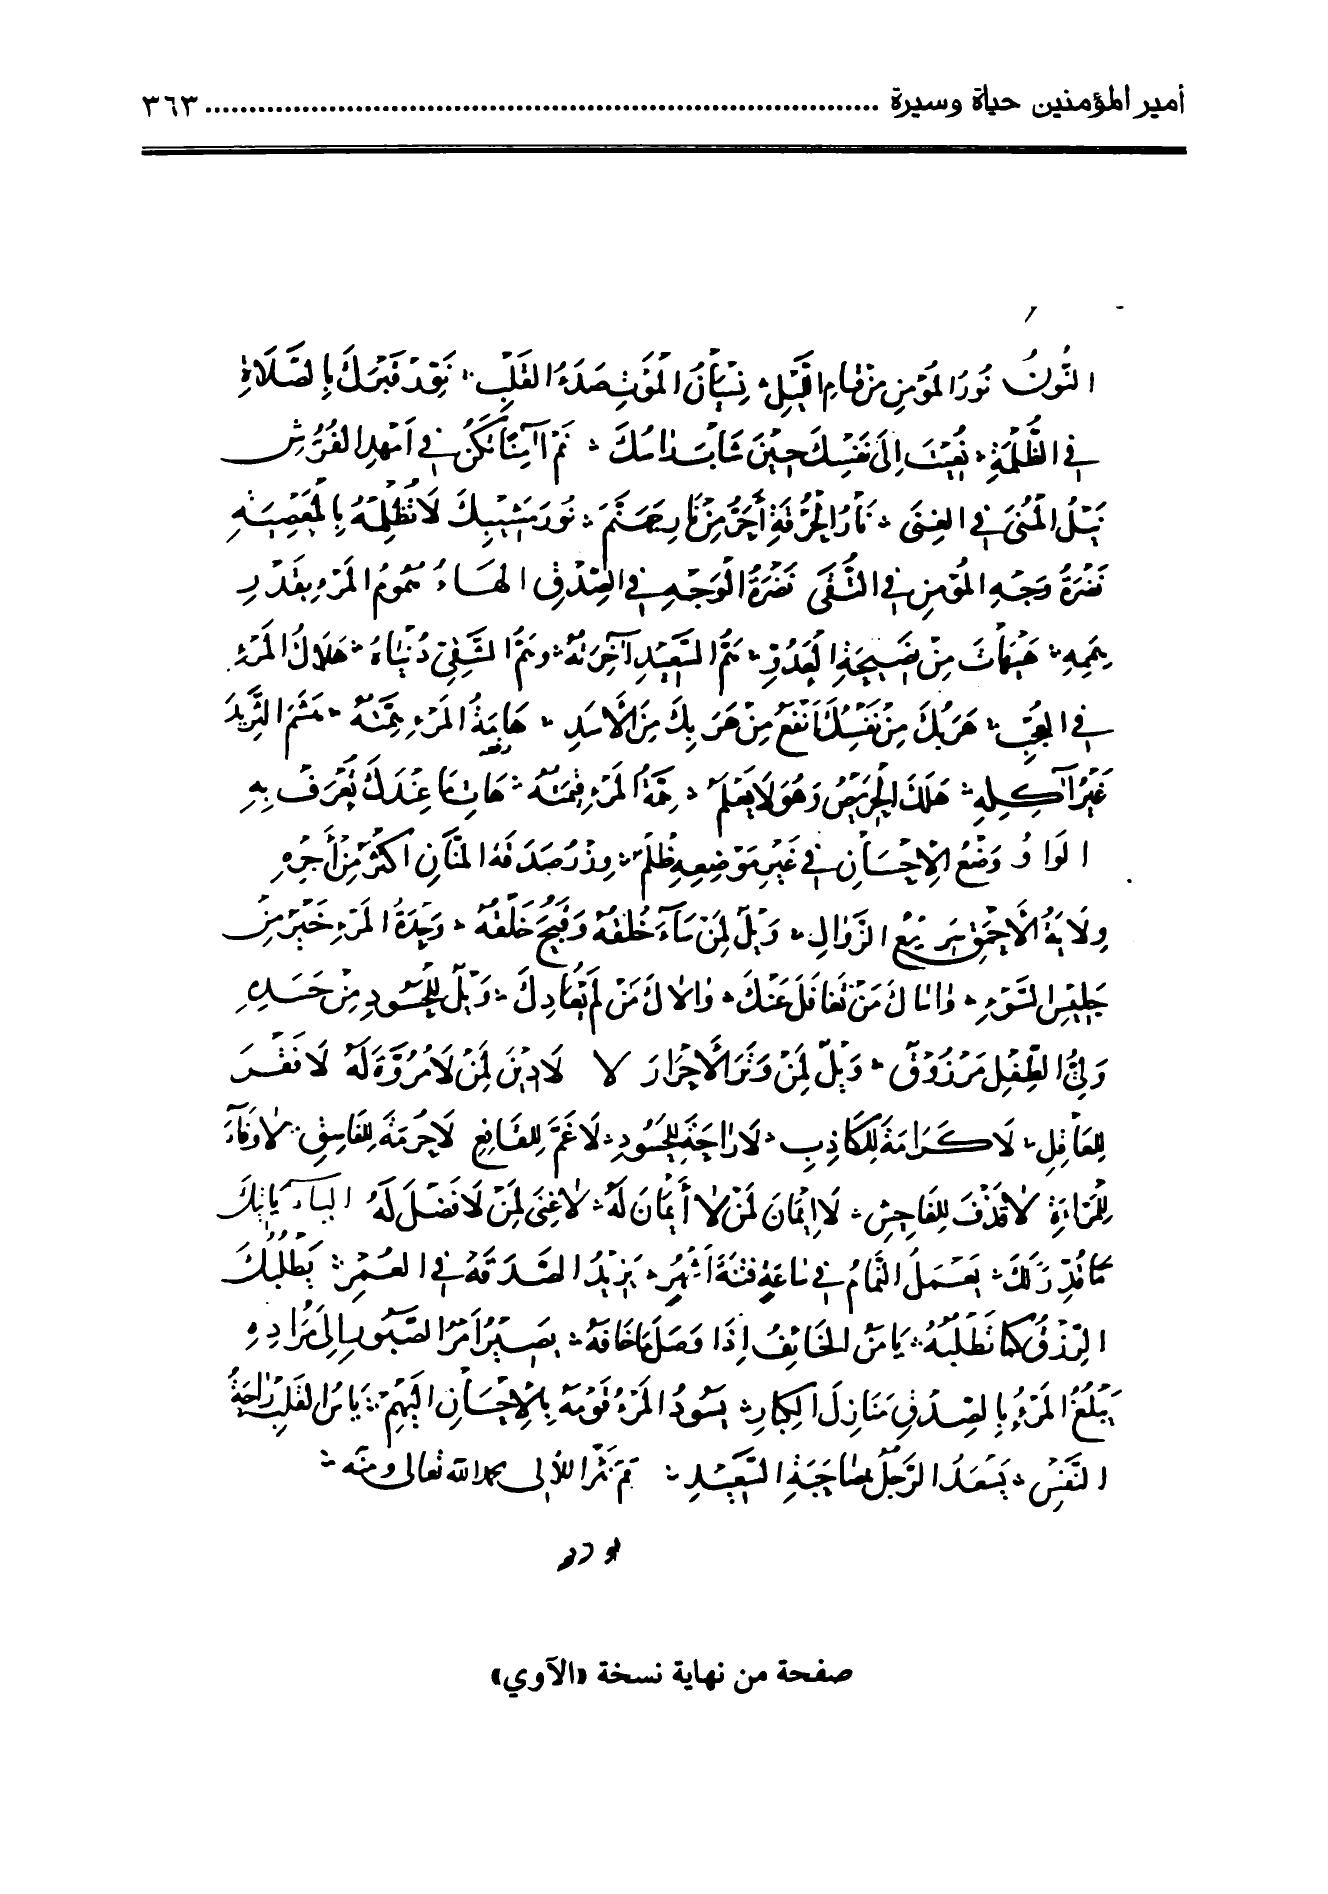 أمير المؤمنين حياة وسيرة ........................................................................... ٣٦٣
النُّونُ نُورُ الْمُؤْمِنِ مِنْ قِيَامِ اللَّيْلِ نِسْيَانُ الْمَوْتِ صَدَءُ القَلْبِ نَوِّرْ قَبْرَكَ بِالصَّلَاةِ
فِي الظُّلْمَةِ نُعِيتَ إِلَى نَفْسِكَ حِيْنَ شَابَ رَاسُكَ نَمْ آمِنًا تَكُنْ فِي أَمْهَدِ الفُرُشِ
نَيْلُ الْمُنَى فِي الغِنَى نَارُ الْفُرْقَةِ أَحَرُّ مِنْ نَارِ جَهَنَّمَ نُورَ مَشِيْبِكَ لَا تُظْلِمْهُ بِالْمَعْصِيَةِ
نَضْرَةُ وَجْهِ الْمُؤْمِنِ فِي التُّقَى نَضْرَةُ الْوَجْهِ فِي الصِّدْقِ الهَاءُ هُمُومُ الْمَرْءِ بِقَدْرِ
هِمَمِهِ هَيْهَاتَ مِنْ نَصِيحَةِ الْعَدُوِّ هَمُّ السَّعِيْدِ آخِرَتُهُ وَهَمُّ الشَّقِيِّ دُنْيَاهُ هَلَاكُ الْمَرْءِ
فِي العُجْبِ هَرَبُكَ مِنْ نَفْسِكَ أَنْفَعُ مِنْ هَرَبِكَ مِنَ الْأَسَدِ هَامَةُ الْمَرْءِ هِمَّتُهُ هَشَمَ الثَّرِيْدَ
غَيْرُ آكِلِهِ هَلَكَ الْحَرِيْصُ وَهُوَ لَا يَعْلَمُ هِمَّةُ الْمَرْءِ قِيْمَتُهُ هَاتِ مَا عِنْدَكَ تُعْرَفْ بِهِ
الوَاوُ وَضْعُ الْإِحْسَانِ فِي غَيْرِ مَوْضِعِهِ ظُلْمٌ وِزْرُ صَدَقَةِ الْمَنَّانِ أَكْثَرُ مِنْ أَجْرِهِ
وِلَايَةُ الْأَحْمَقِ سَرِيْعُ الزَّوَالِ وَيْلٌ لِمَنْ سَآءَ خُلْقُهُ وَقَبُحَ خَلْقُهُ وَحْدَةُ الْمَرْءِ خَيْرٌ مِنْ
جَلِيْسِ السَّوْءِ وَاسَاكَ مَنْ تَغَافَلَ عَنْكَ وَالَاكَ مَنْ لَمْ يُعَادِكَ وَيْلٌ لِلْحَسُودِ مِنْ حَسَدِهِ
وَلِيُّ الطِّفْلِ مَرْزُوْقٌ وَيْلٌ لِمَنْ وَتَرَ الْأَحْرَارَ لا لَا دِيْنَ لِمَنْ لَا مُرُوَّةَ لَهُ لَا فَقْرَ
لِلْعَاقِلِ لَا كَرَامَةَ لِلْكَاذِبِ لَا رَاحَةَ لِلْحَسُودِ لَا غَمَّ لِلْقَانِعِ لَا حُرْمَةَ لِلْفَاسِقِ لَا وَفَآءَ
لِلْمَرْاةِ لَا قَذْفَ لِلْفَاجِشِ لَا إِيْمَانَ لِمَنْ لَا أَمَانَ لَهُ لَا غِنَى لِمَنْ لَا فَضْلَ لَهُ اليَاءُ يَأْتِيكَ
مَا قُدِّرَ لَكَ يَعْمَلُ النَّمَّامُ فِي سَاعَةٍ فِتْنَةَ أَشْهُرٍ يَزِيْدُ الصَّدَقَةُ فِي العُمْرِ يَطْلُبُكَ
الرِّزْقُ كَمَا تَطْلُبُهُ يَامَنُ الخَائِفُ إِذَا وَصَلَ مَا خَافَهُ يَصِيْرُ أَمْرُ الصَّبُورِ إِلَى مُرَادِهِ
يَبْلُغُ الْمَرْءُ بِالصِّدْقِ مَنَازِلَ الْكِبَارِ يَسُوْدُ الْمَرْءُ قَوْمَهُ بِالْإِحْسَانِ إِلَيْهِمْ يَاسُ القَلْبِ رَاحَةُ
النَّفْسِ يَسْعَدُ الرَّجُلُ بِمُصَاحَبَةِ السَّعِيْدِ تَمَّ نَثْرُ اللآلى بحمد الله تعالى ومنه
صفحة من نهاية نسخة «الآوي»